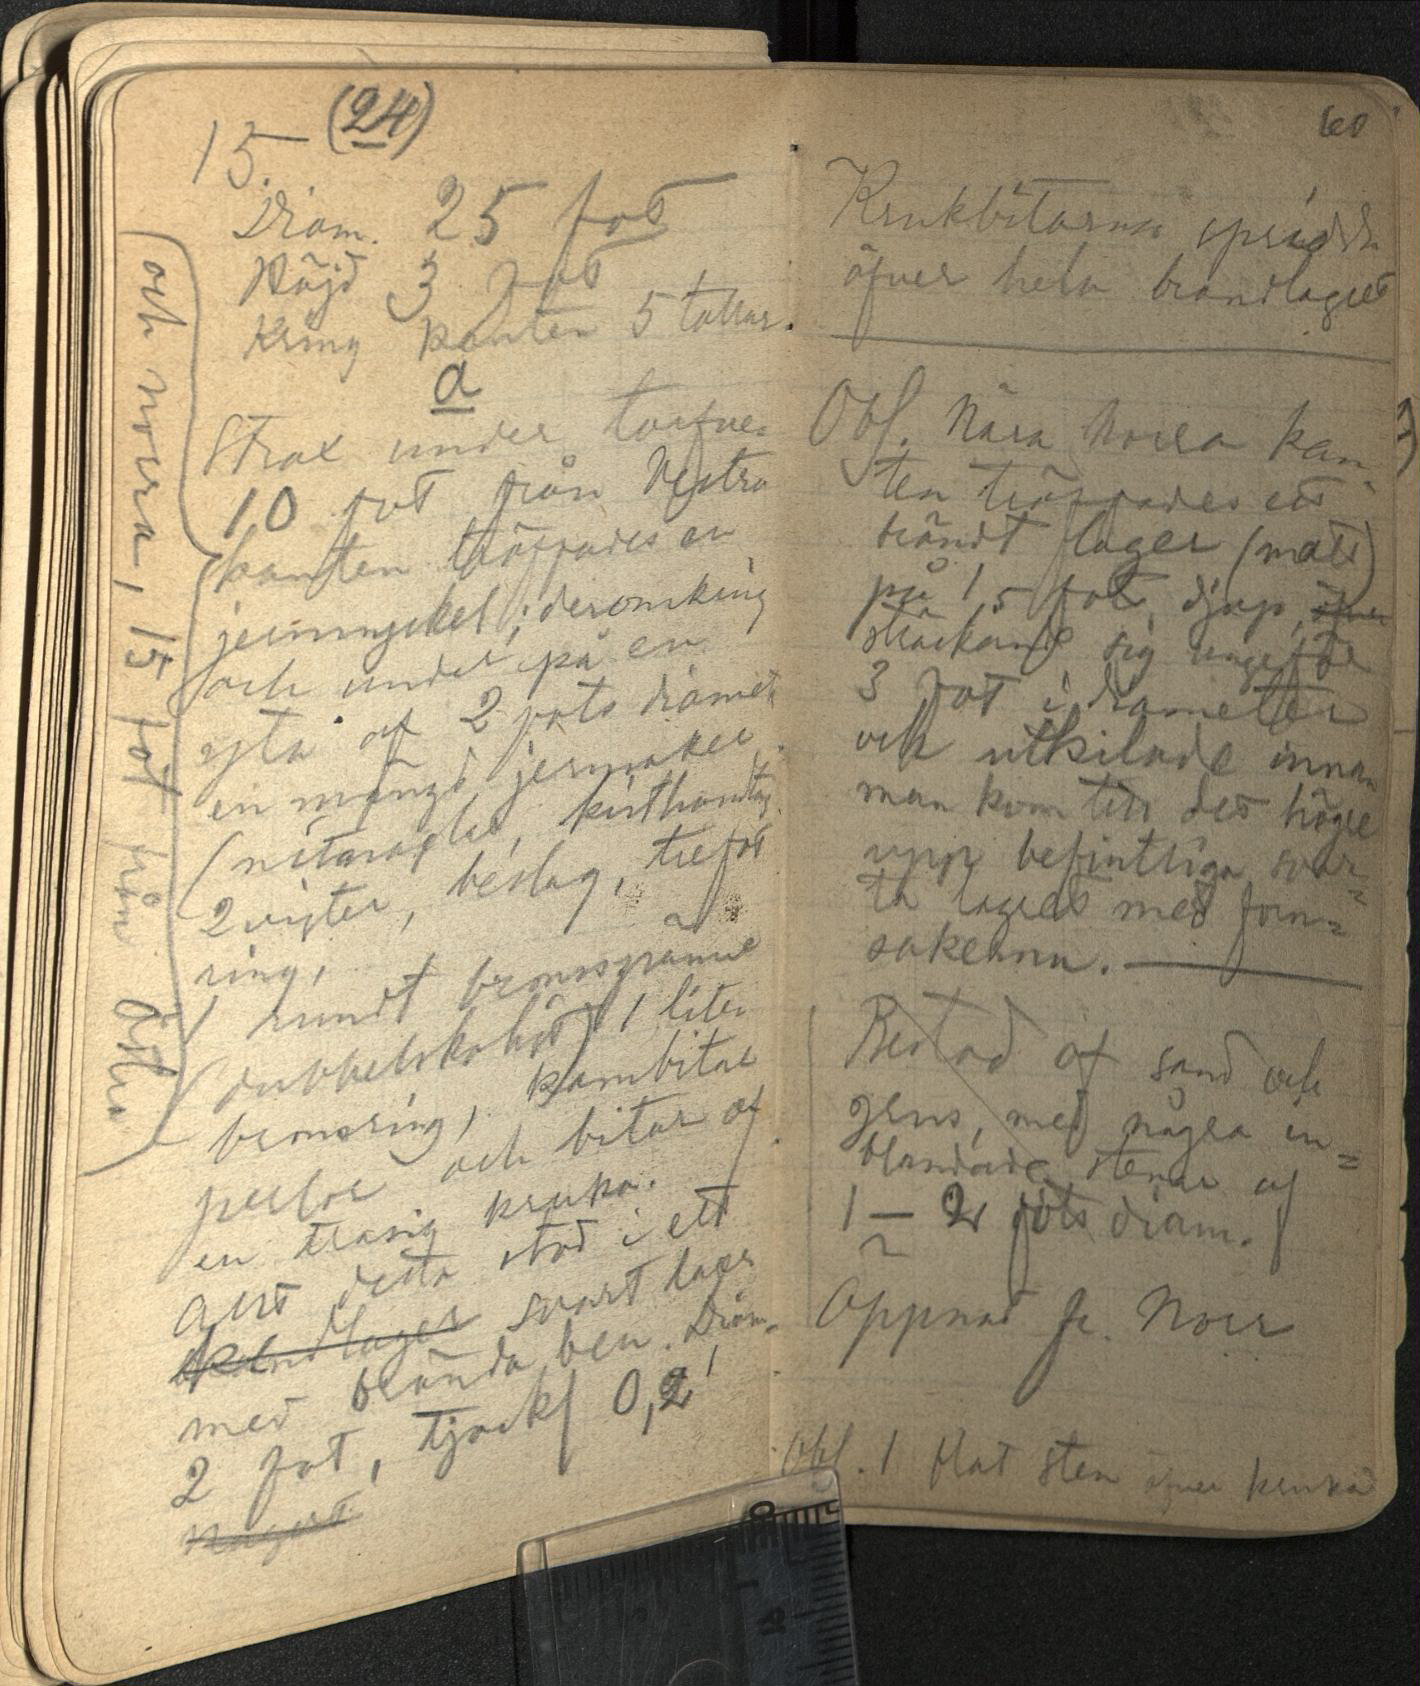 15. (24)
Diam. 25 fot
Höjd 3 fot
Kring kanten 5 tallar.
a
Strax under torfven
10 fot från Vestra
(och norra, 15 fot från östra)
kanten träffades en
jernnyckel; deromkring
och under på en
yta af 2 fots diamet.
en mängd jernsaker
(nitnaglar, kisthandtag,
2 vigter, beslag, trefot
ring,
1 rundt bronsspänne
(dubbelskaligt) 1 liten
bronsring, kambitar
perlor och bitar af
en trasig kruka.
Allt detta stod i ett
brandlager svart lager
med brända ben. Diam.
2 fot, tjockl 0,2'
Något
60
Krukbitarna spridda
öfver hela brandlagret
Obs. Nära Norra kan-
ten träffades ett
brändt lager (matt)
på 1,5 fots djup, öfver
sträckande sig ungefär
3 fot i diameter
och utkilade innan
man kom till det högre
upp befintliga svar-
ta lagret med forn-
sakerna.
Bestod af sand och
grus, med några in-
blandade stenar af
1 — 2 fots diam.
Öppnad fr. Norr
Obs. 1 flat sten öfver kruka